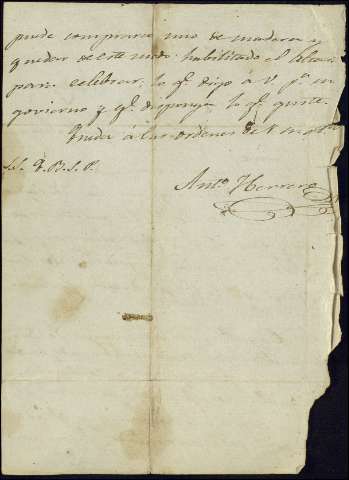 puede comprarse uno de madera y
quedar de este modo habilitado el
para celebrar, lo qe. digo á V. pa. su
govierno y qe. disponga lo qe. guste.
Queda á las ordenes de V.
Q. B. S. P.
Anto. Herrero